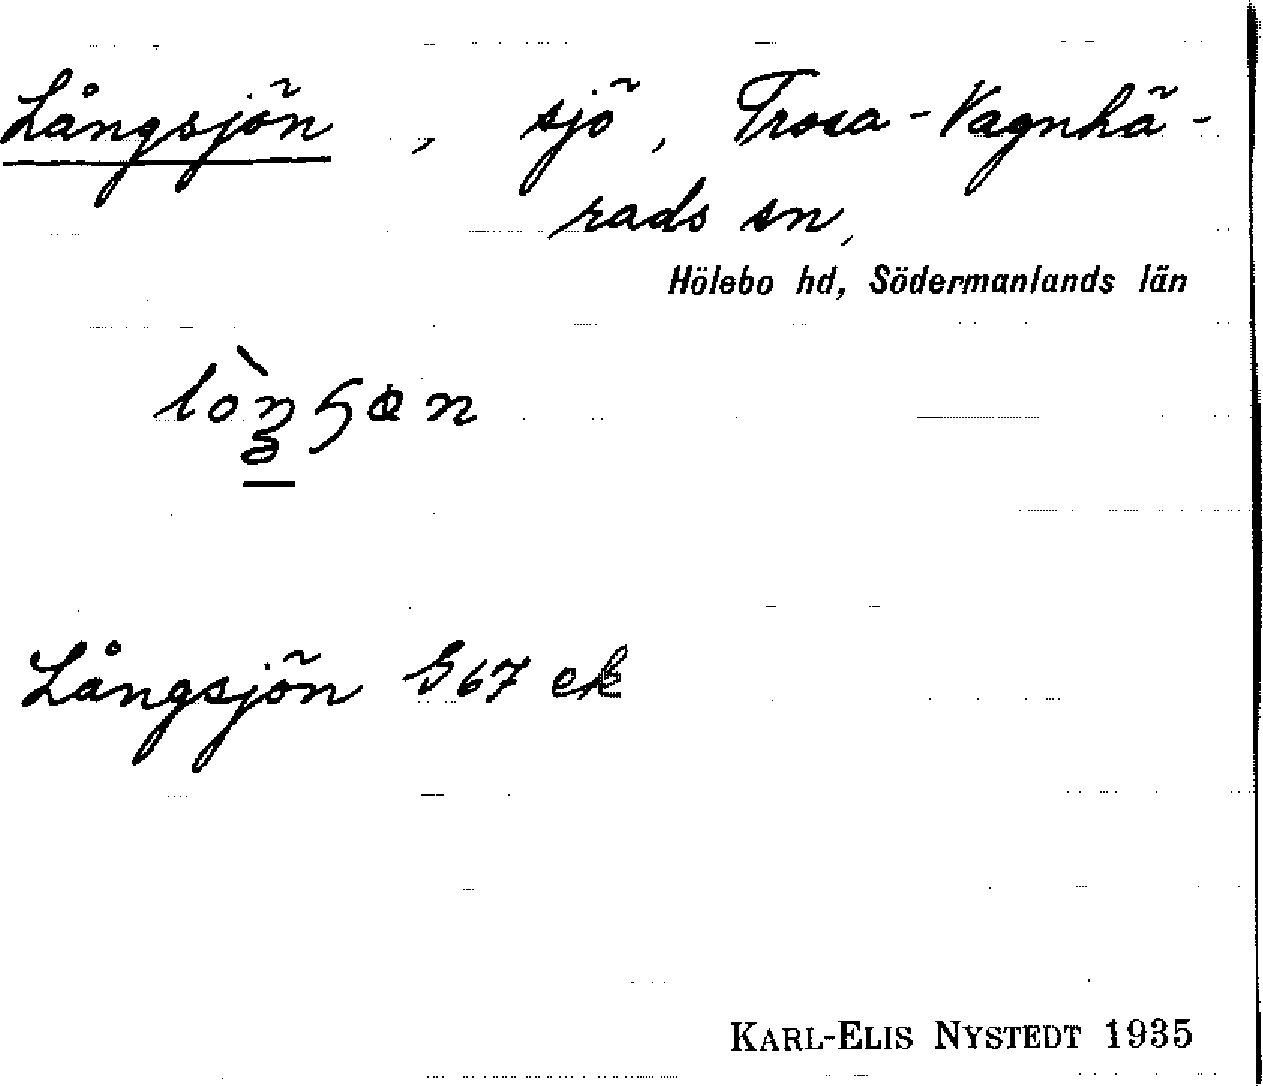 Långsjön, sjö, Trosa-Vagnhä-
rads sn,
Hölebo hd, Södermanlands län
Långsjön G67 ek
KARL-ELIS NYSTEDT 1935